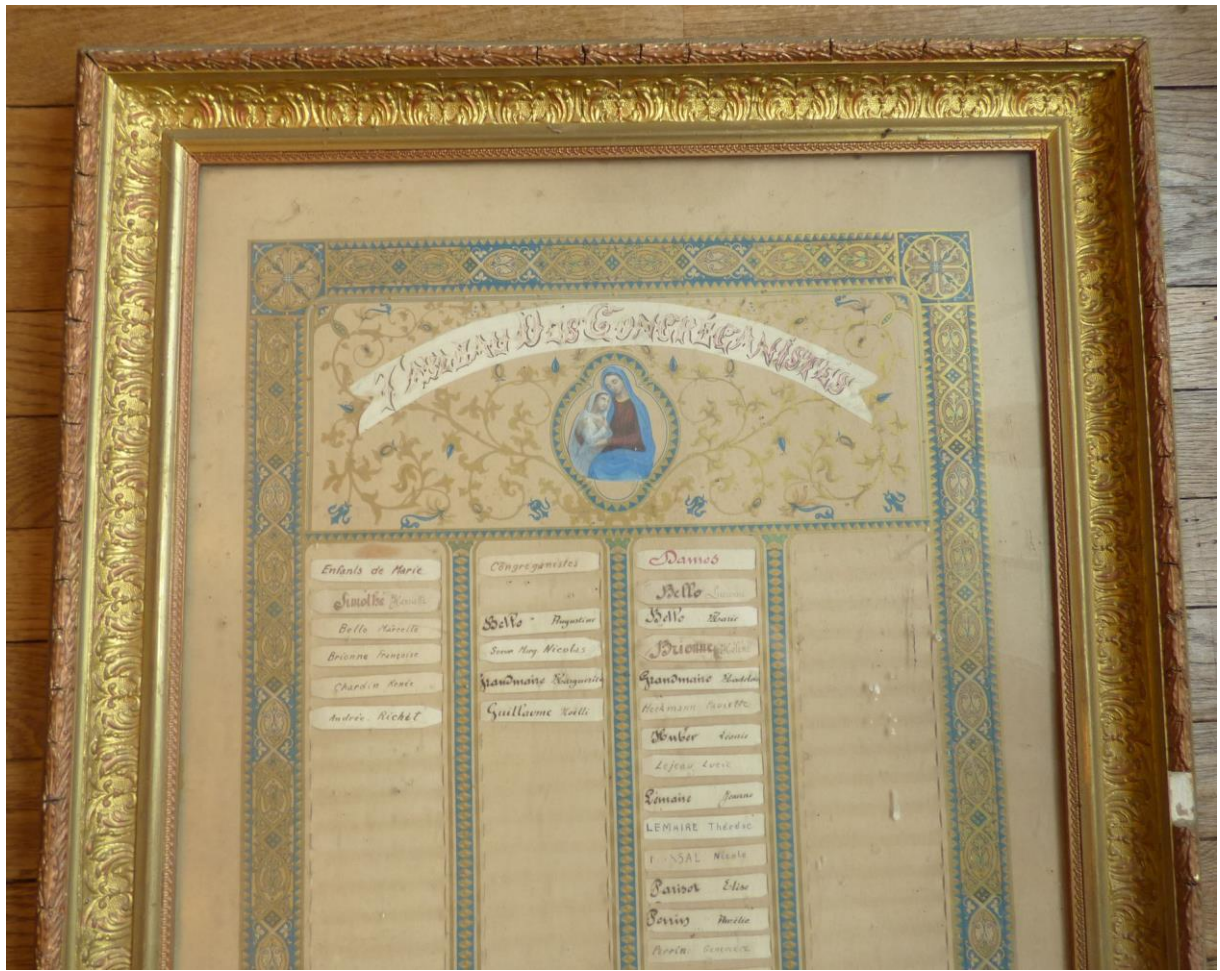 Tableau Des Congréganistes
Enfants de Marie
Timothé
Bello Marcelle
Brionne Françoise
Chardin Renée
Andrée Richet
Congréganistes
Bello Augustine
Soeur Mag. Nicolas
Grandmaire Marguerite
Guillaume Noëlli
Dames
Bello
Bello Marie
Brionne Hélène
Grandmaire Madeleine
Heckmann Paulette
Huber Léonie
Lejeau Lucie
Lemaire Jeanne
LEMAIRE Théodec
SSAL Nicole
Parisot Elise
Perrin Amélie
Perrin